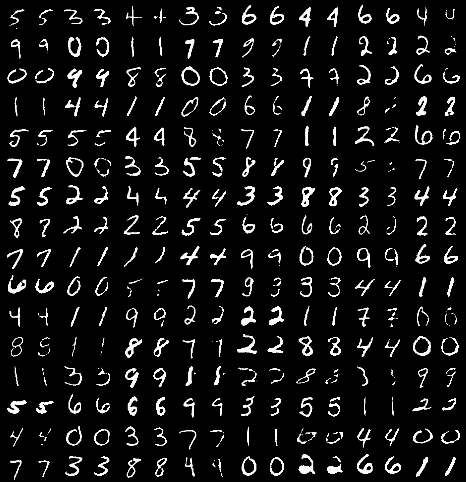 5 5 3 3 4 4 3 3 6 6 4 4 6 6 4
9 9 0 0 1 1 7 7 9 9 1 1 2 2 2 2
0 0 9 9 8 8 0 0 3 3 7 7 2 2 6 6
1 1 4 4 1 1 0 0 6 6 1 1 8 2 2
5 5 5 5 4 4 8 8 7 7 1 1 2 2 6 6
7 7 0 0 3 3 5 5 8 8 9 9 5 7 7
5 5 2 2 4 4 4 4 3 3 8 8 3 3 4 4
8 2 2 2 2 5 5 6 6 6 6 2 2 2 2
7 7 1 1 1 1 4 4 9 9 0 0 9 9 6 6
6 6 0 0 5 7 7 9 3 3 3 4 4 1 1
4 4 1 1 9 9 2 2 2 2 1 1 7 7 0 0
8 8 1 1 8 8 7 7 2 2 8 8 4 4 0 0
1 1 3 3 9 9 1 1 2 2 8 8 3 3 9 9
5 5 6 6 6 6 9 9 3 3 5 5 1 1 2 2
4 4 0 0 3 3 7 7 1 1 0 0 4 4 0 0
7 7 3 3 8 8 4 9 0 0 2 2 6 6 1 1